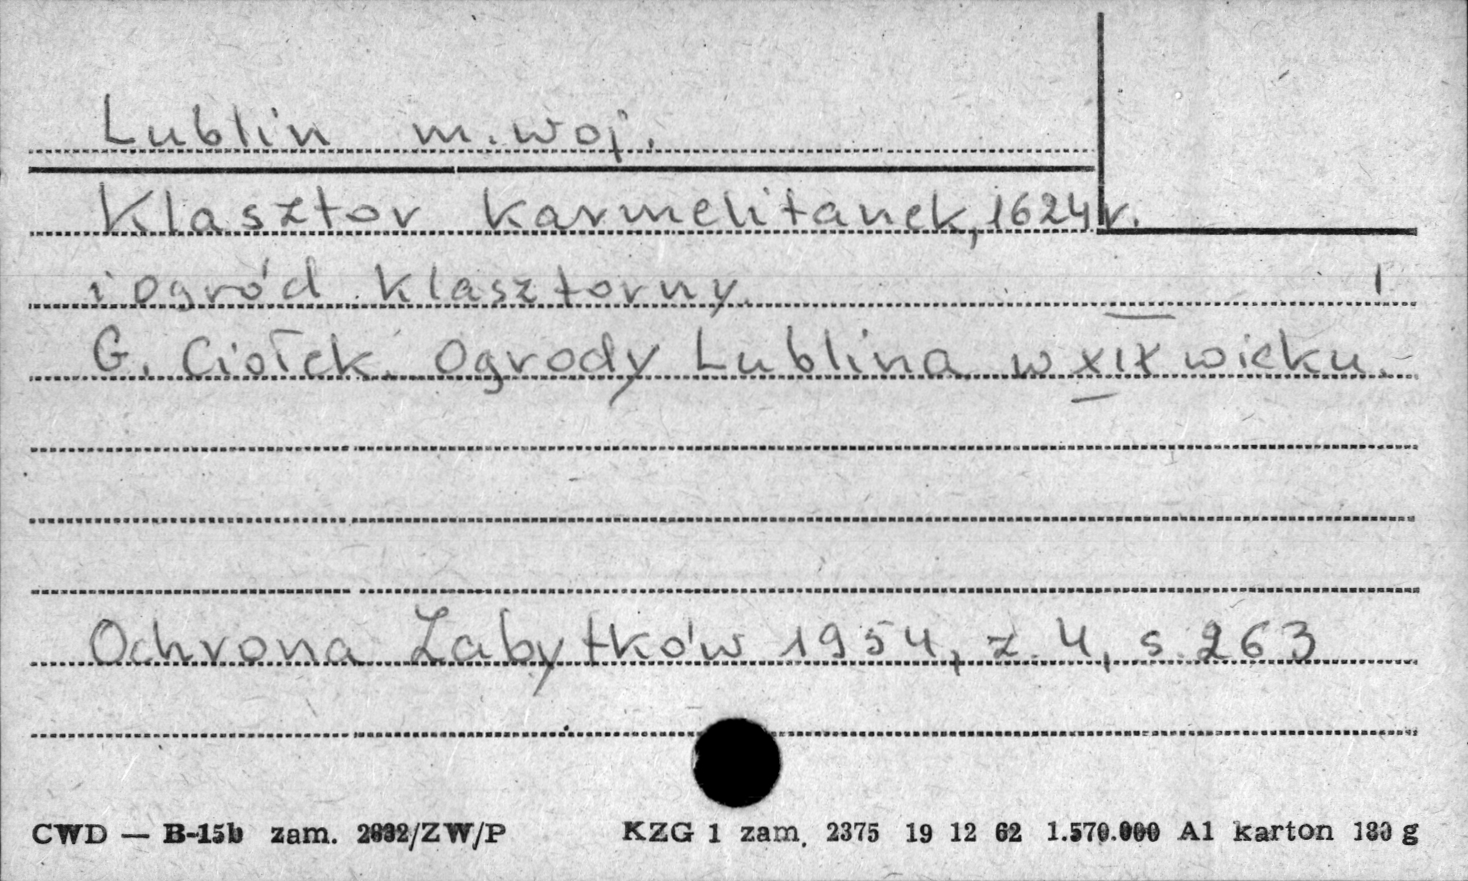 Lublin m. woj.
Klasztor karmelitanek, 1624 r.
i ogród klasztorny.
G. Ciołek. Ogrody Lublina w XIX wieku.
Ochrona Zabytków 1954, z. 4, s. 263
CWD — B-15b zam. 2832/ZW/P KZG 1 zam. 2375 19 12 62 1.570.000 A1 karton 180 g